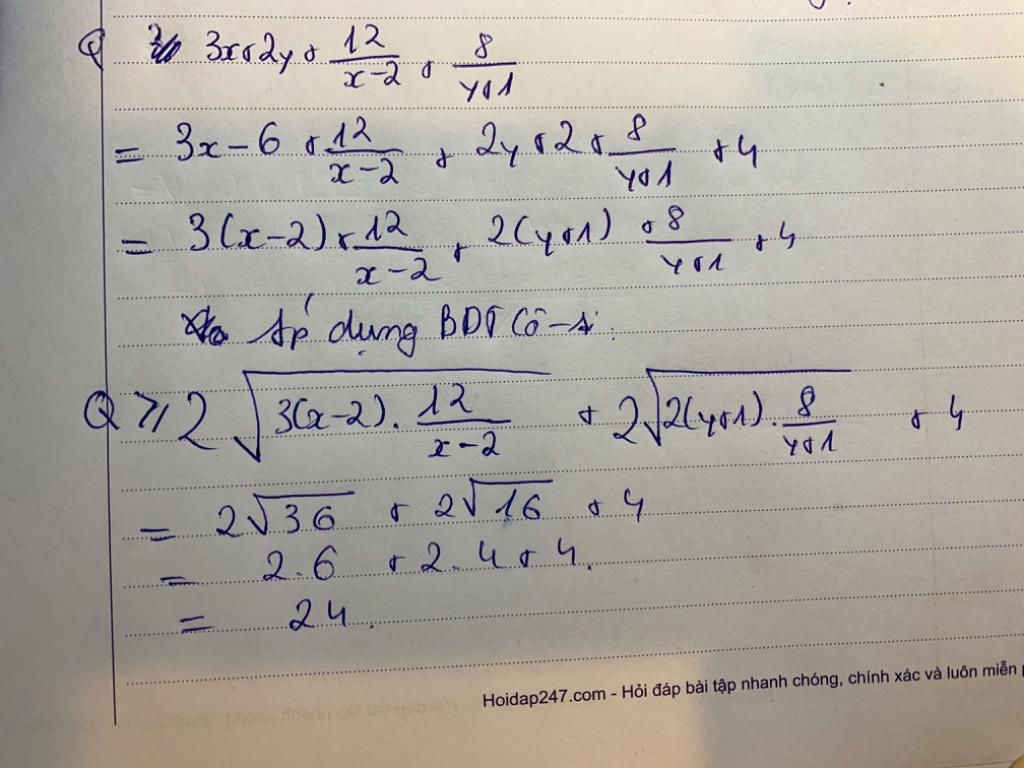 Q 3x+2y+ 12/(x-2) + 8/(y+1)
= 3x-6 + 12/(x-2) + 2y+2+ 8/(y+1) +4
= 3(x-2)+ 12/(x-2) + 2(y+1) + 8/(y+1) +4
Áp dụng BDT Cô-si:
Q ≥ 2√(3(x-2). 12/(x-2)) + 2√(2(y+1). 8/(y+1)) + 4
= 2√36 + 2√16 + 4
= 2.6 +2.4+4.
= 24.
Hoidap247.com - Hỏi đáp bài tập nhanh chóng, chính xác và luôn miễn